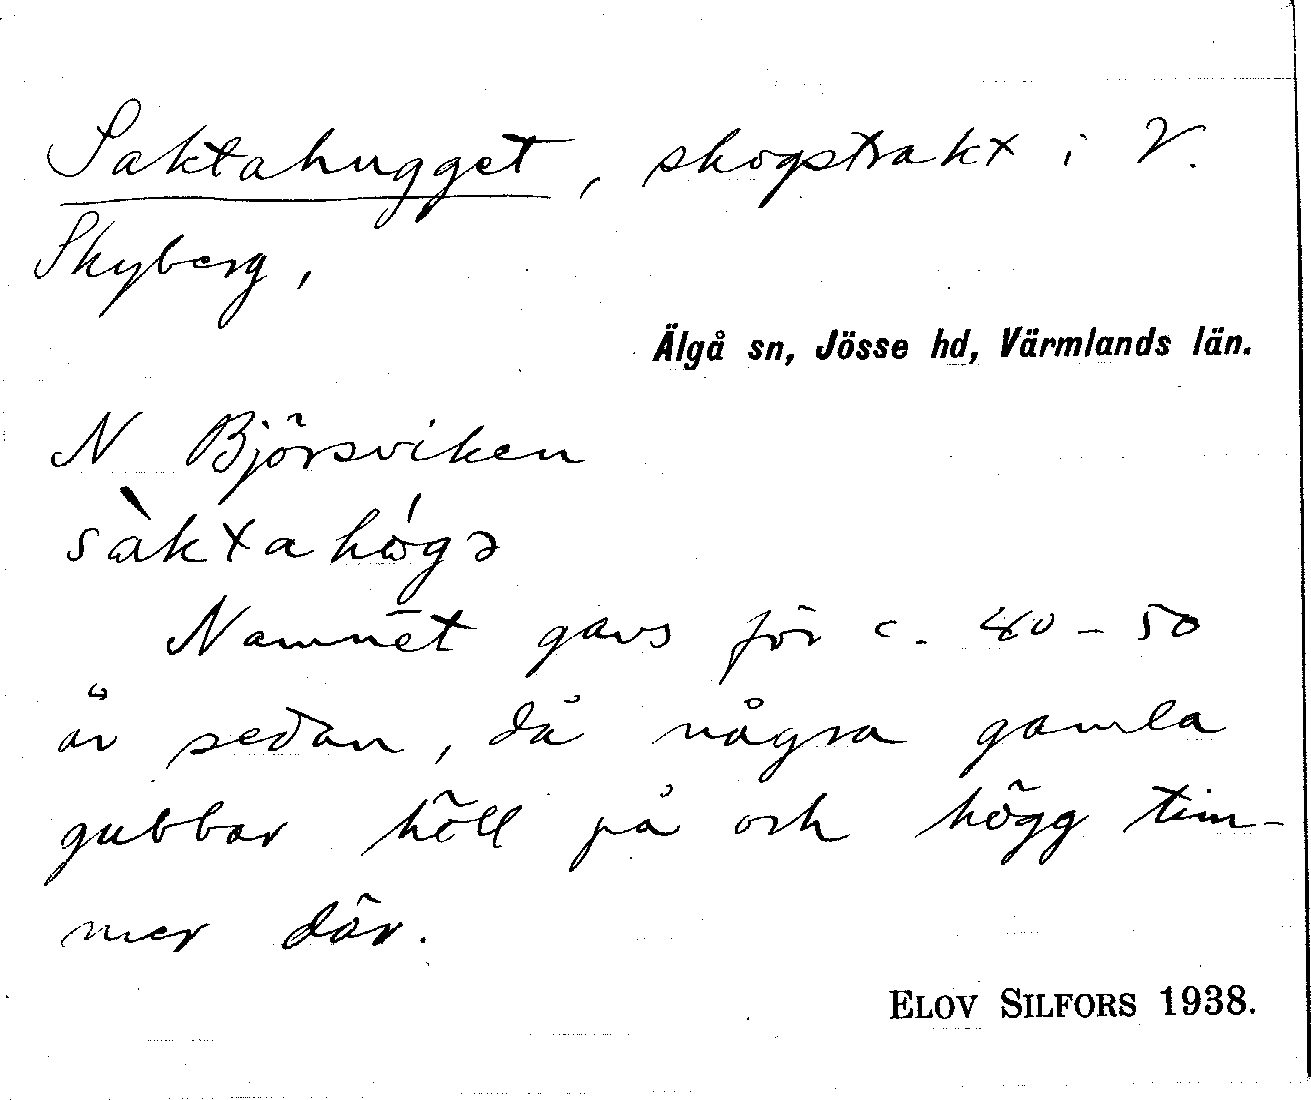 Saktahugget, skogstrakt i V.
Skyberg,
Älgå sn, Jösse hd, Värmlands län.
N Björsviken
sàktahógə
Namnet gavs för c. 40-50
år sedan, då några gamla
gubbar höll på och högg tim-
mer där.
ELOV SILFORS 1938.